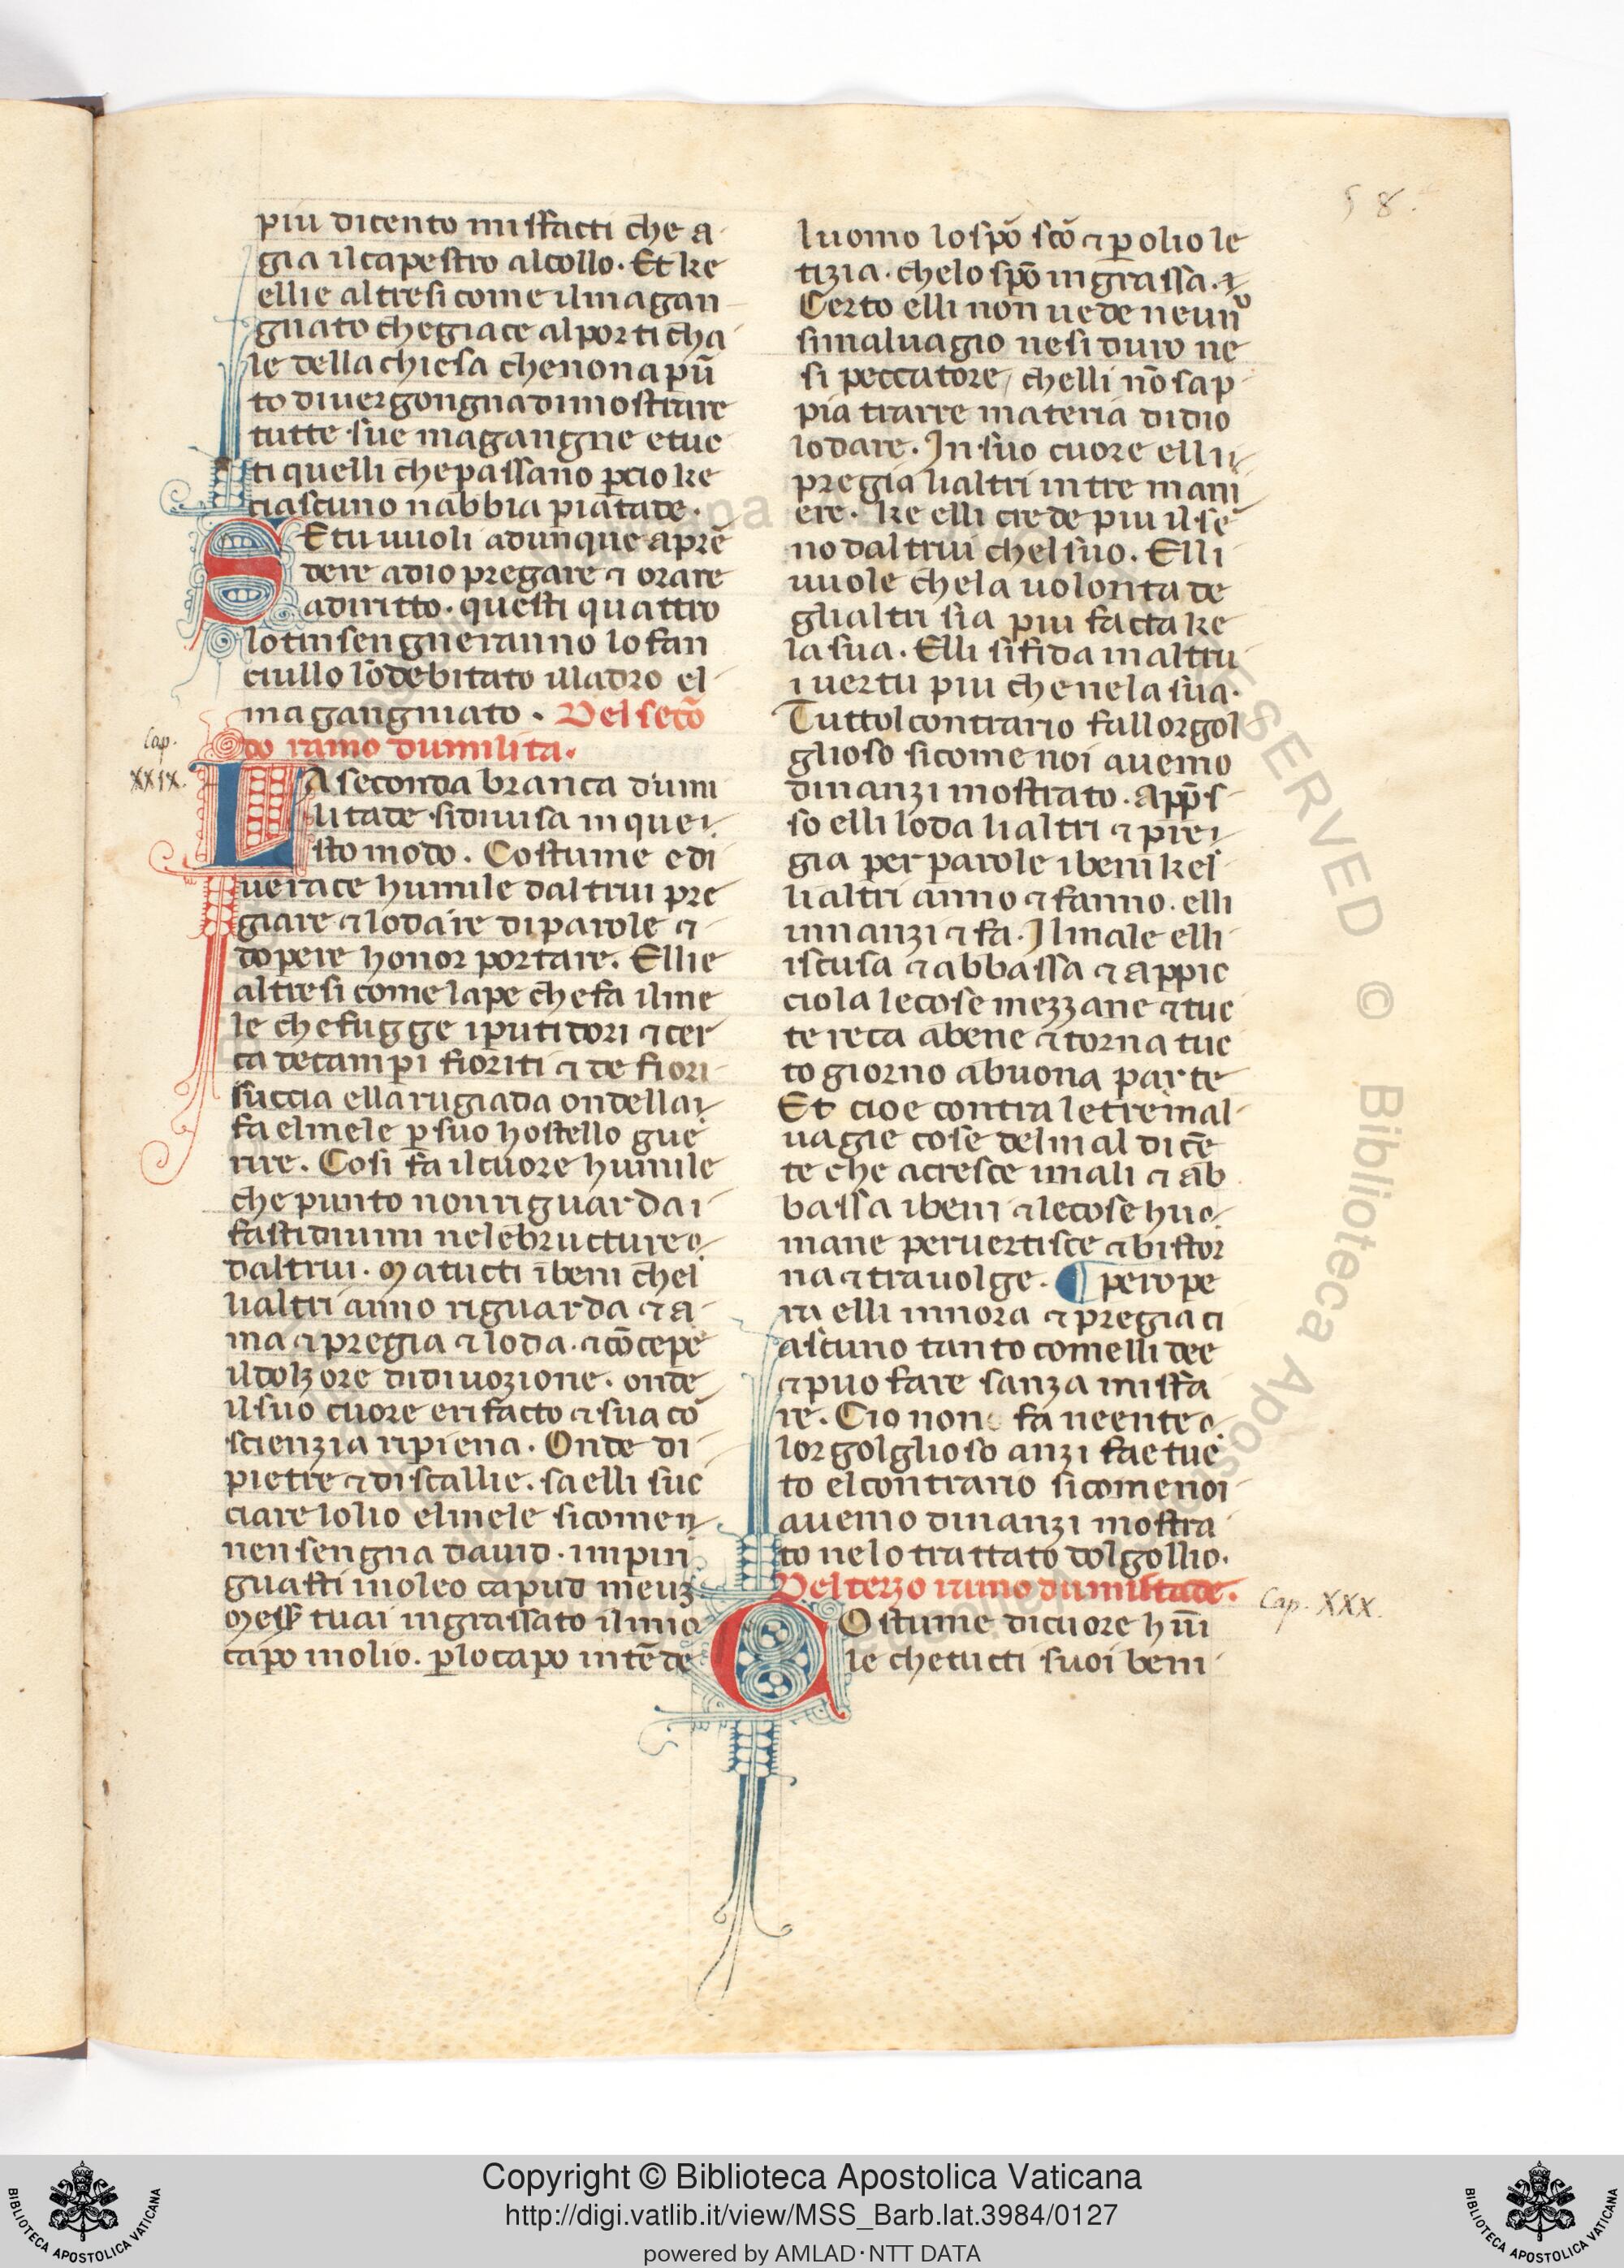 58.
piu dicento misfacti che a
gia il capestro alcollo. Et ke
ellie altresi come ilmagan
gnato chegiace alporticha
le della chiesa chenonapū
to diuergongna dimostrare
tutte sue magangne etuc
ti quelli chepassano ꝑcio ke
ciascuno nabbia piatade.
SEtu uuoli adunque apre
dere adio pregare ⁊ orare
adiritto. questi quattro
lotinsengneranno lo fan
ciullo lōdebitato illadro el
magangniato. Del secō
do ramo dumilita.
Cap. XXIX.
LA seconda branca dumi
litade sidiuisa in que
sto modo. Costume edi
uerace humile daltrui pre
giare ⁊ lodare diparole ⁊
dopere honor portare. Ellie
altresi come lape chefa ilme
le chefugge iputidori ⁊ cer
ca decampi fioriti ⁊ de fiori
succia ella rugiada ondella
fa elmele ꝑ suo hostello gue
rire. Cosi fa ilcuore humile
che punto nonriguarda i
fastidiumi nelebructure
daltrui. Matucti ībeni chel
lialtri anno riguarda ⁊ a
ma ⁊ pregia ⁊ loda. ⁊ cōcepe
ildolzore didiuozione. onde
ilsuo cuore erifacto ⁊ sua co
scienzia ripiena. Onde di
pietre ⁊ discallie. sa elli suc
ciare lolio elmele sicomen
nensengna dauid. impin
guasti inoleo capud meuʒ
Mess̄ tuai ingrassato ilmio
capo inolio. ꝑlocapo intēde
luomo lospō scō ⁊ ꝑ olio le
tizia. chelo spō ingrassa. ⁊
Certo elli non uede neunº
simaluagio nesi duro ne
si peccatore, chelli nō sap
pia trarre materia didio
lodare. In suo cuore elli
pregia lialtri in tre mani
ere. ke elli crede piu il se
no daltrui chel suo. Elli
uuole chela uolonta de
glialtri sia piu facta ke
la sua. Elli sifida inaltrui
uertu piu che nela sua.
Tuttol contrario fallorgol
glioso sicome noi auemo
dinanzi mostrato. Appֿs
so elli loda lialtri ⁊ pre
gia per parole ibeni kel
lialtri anno ⁊ fanno. elli
innanzi ⁊ fa. Ilmale elli
iscusa ⁊ abbassa ⁊ appic
ciola lecose mezzane ⁊ tuc
te reca abene ⁊ torna tuc
to giorno abuona parte
Et cioe contra le tre mal
uagie cose delmal dicē
te che acresce imali ⁊ ab
bassa ibeni ⁊ lecose huo
mane peruertisce ⁊ bistor
na ⁊ trauolge. ¶ pero pe
ra elli innora ⁊ pregia ci
ascuno tanto comelli dee
⁊ puo fare sanza misfa
re. Cio non fa neente
lorgolglioso anzi fae tuc
to el contrario sicome noi
auemo dinanzi mostra
to nelo trattato dolgollio.
Del terzo ramo dumilitade.
Cap. XXX.
COstume dicuore hūi
le chetucti suoi beni
Copyright © Biblioteca Apostolica Vaticana
http://digi.vatlib.it/view/MSS_Barb.lat.3984/0127
powered by AMLAD·NTT DATA
BIBLIOTECA APOSTOLICA VATICANA
BIBLIOTECA APOSTOLICA VATICANA